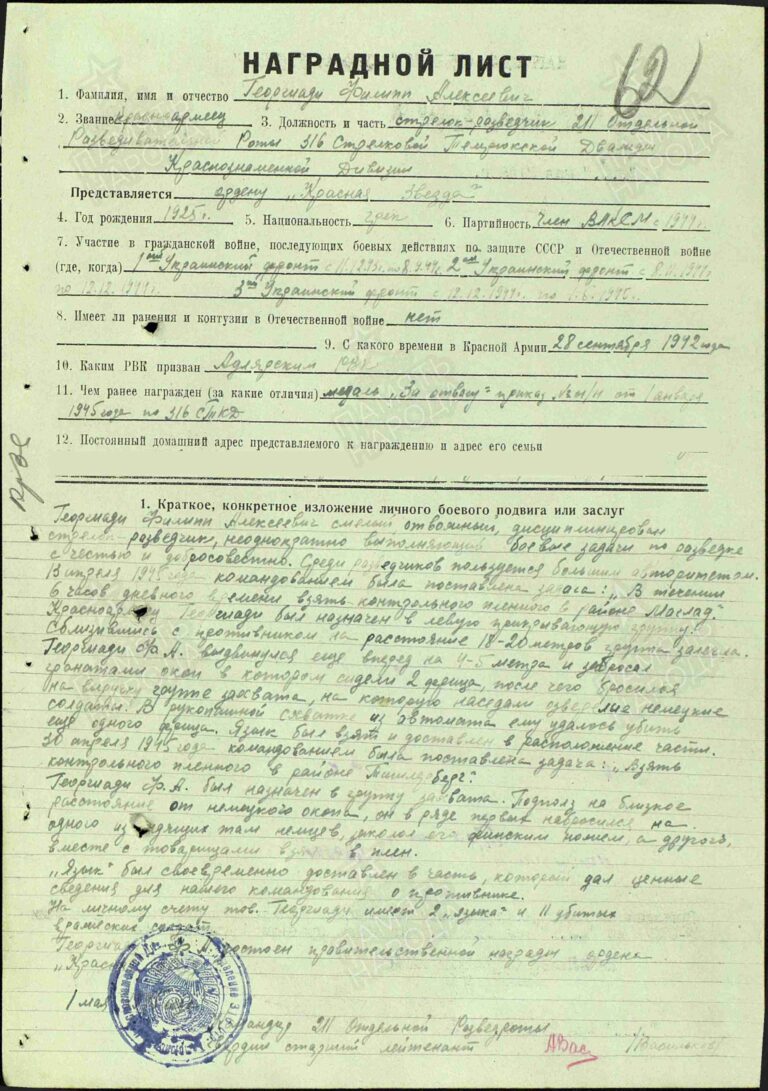 62
НАГРАДНОЙ ЛИСТ
1. Фамилия, имя и отчество Георгиади Филипп Алексеевич
2. Звание красноармеец 3. Должность и часть стрелок-разведчик 211 Отдельной
Разведывательной Роты 316 Стрелковой Темрюкской Дважды
Краснознаменной Дивизии
Представляется ордену „Красная Звезда"
4. Год рождения 1925 г. 5. Национальность грек 6. Партийность член ВЛКСМ с 1944 г.
7. Участие в гражданской войне, последующих боевых действиях по защите СССР и Отечественной войне
(где, когда) 1ый Украинский фронт с 2ой Украинский фронт с
по 12.12.1944 г. 3ий Украинский фронт с 12.12.1944 г. по
8. Имеет ли ранения и контузии в Отечественной войне нет
9. С какого времени в Красной Армии 28 сентября 1942 года
10. Каким РВК призван Адлярским рвк
11. Чем ранее награжден (за какие отличия) медаль „За отвагу" приказ от января
1945 года по 316 СТКД
12. Постоянный домашний адрес представляемого к награждению и адрес его семьи
1. Краткое, конкретное изложение личного боевого подвига или заслуг
Георгиади Филипп Алексеевич смелый отважный, дисциплинирован
стрелок разведчик, неоднократно выполняющий боевые задачи по разведке
с честью и добросовестно. Среди разведчиков пользуется большим авторитетом.
13 апреля 1945 года командованием была поставлена задача: „В течении
6 часов дневного времени взять контрольного пленного в районе Маслад."
Красноармеец Георгиади был назначен в левую прикрывающую группу.
Сблизившись с противником на расстояние 18-20 метров группа залегла.
Георгиади Ф.А. выдвинулся еще вперед на 4-5 метра и забросал
гранатами окоп в котором сидели 2 фрица, после чего бросился
на выручку группе захвата, на которую наседали немецкие
солдаты. В рукопашной схватке из автомата ему удалось убить
еще одного фрица. Язык был взят и доставлен в расположение части.
30 апреля 1945 года командованием была поставлена задача: „Взять
контрольного пленного в районе
Георгиади Ф.А. был назначен в группу захвата. Подполз на близкое
расстояние от немецкого окопа, он в ряде первых набросился на
одного из сидящих там немцев, заколол его финским ножом, а другого,
вместе с товарищами взял в плен.
„Язык" был своевременно доставлен в часть, который дал ценные
сведения для нашего командования о противнике.
На личному счету тов. Георгиади имеет 2 „языка" и 11 убитых
вражеских солдат.
Ф.А. достоен правительственной награды ордена
1 мая
211 Отдельной Разведроты
старший лейтенант Васильков